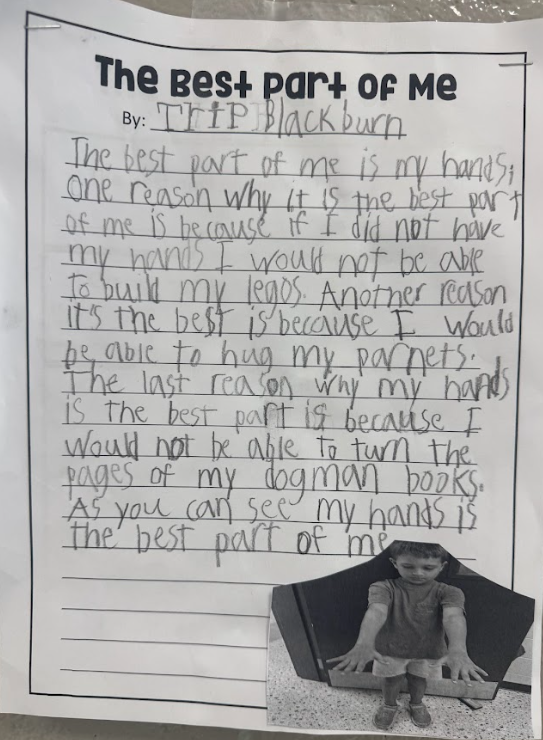 The Best Part Of Me
By: TRIP Blackburn
The best part of me is my hands;
one reason why it is the best part
of me is because if I did not have
my hands I would not be able
to build my legos. Another reason
it's the best is because I would
be able to hug my parnets.
The last reason why my hands
is the best part is because I
would not be able to turn the
pages of my dogman books.
As you can see my hands is
the best part of me